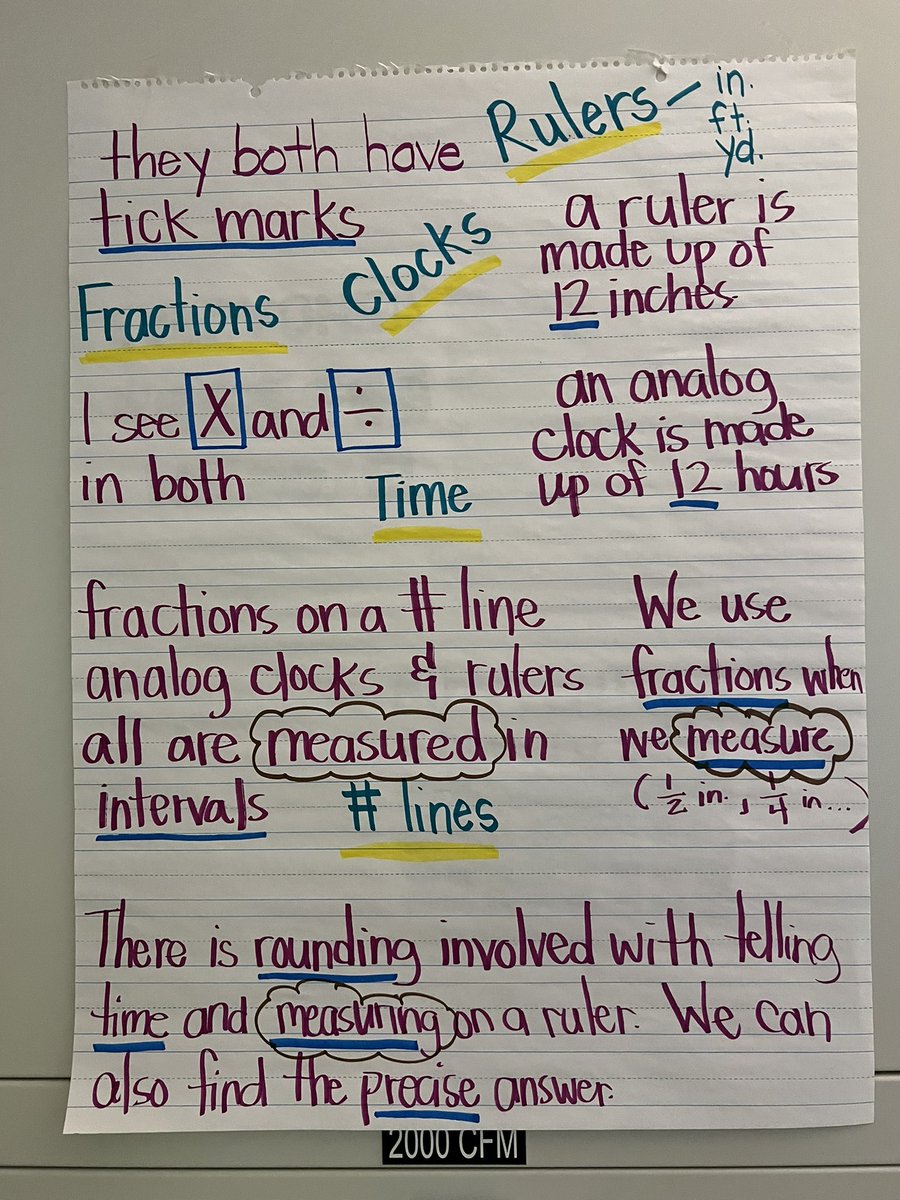 they both have
tick marks
Rulers - in.
ft.
yd.
a ruler is
made up of
12 inches.
Clocks
Fractions
I see X and ÷
in both
an analog
clock is made
up of 12 hours
Time
fractions on a # line
analog clocks & rulers
all are measured in
intervals
# lines
We use
fractions when
we measure
(1/2 in., 1/4 in...)
There is rounding involved with telling
time and measuring on a ruler. We can
also find the precise answer.
2000 CFM